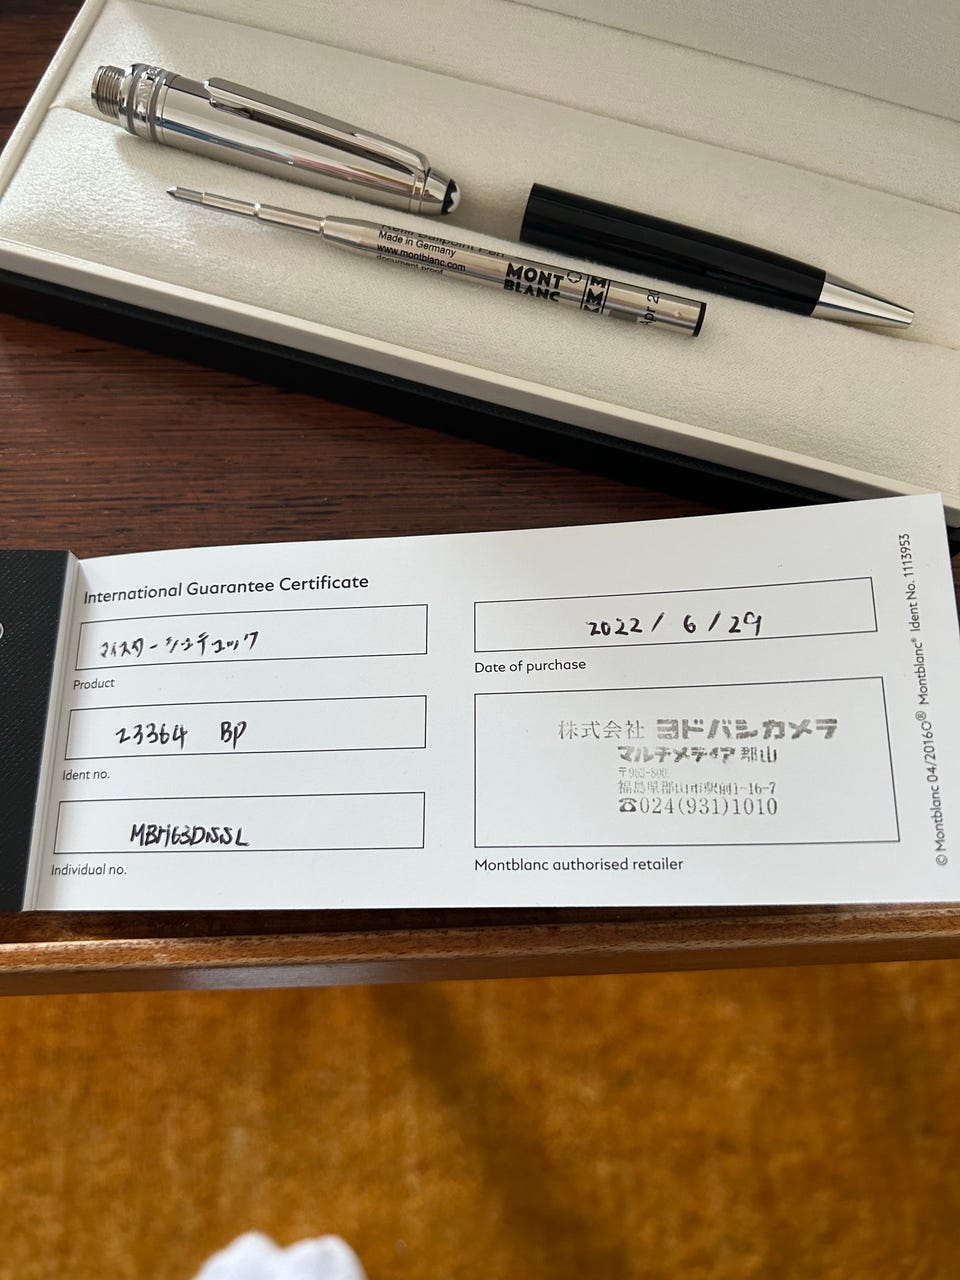 Refill Ballpoint Pen
Made in Germany
www.montblanc.com
document proof
MONT
BLANC
M
M
Apr 20
International Guarantee Certificate
マイスターシュテュック
Product
23364 BP
Ident no.
Individual no.
2022 / 6 / 29
Date of purchase
株式会社 ヨドバシカメラ
マルチメディア 郡山
福島県郡山市駅前1-16-7
☎024(931)1010
Montblanc authorised retailer
© Montblanc 04/2016O® Montblanc® Ident No. 1113953